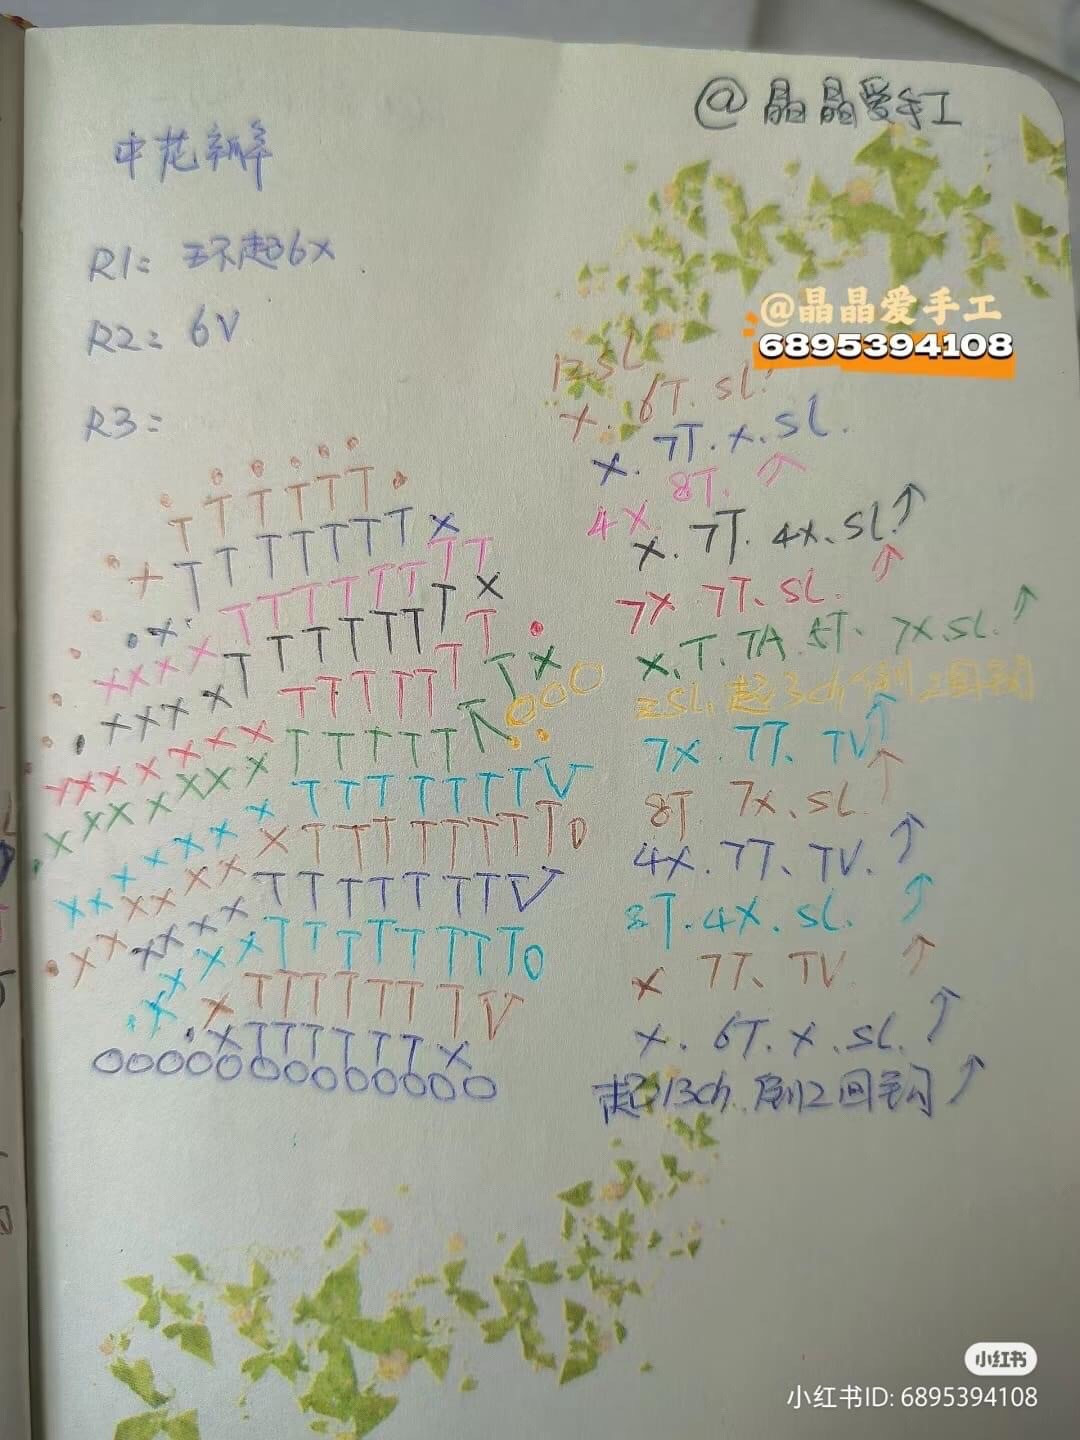 @晶晶爱手工
中花瓣
R1= 环起6x
@晶晶爱手工
6895394108
R2= 6V
R3=
12SL
x. 6T. SL.
x. 7T. x. SL.
4X. 8T.
x. 7T. 4X. SL.
7X 7T. SL.
x. T. 7A. 5T. 7X. SL.
2SL. 起3ch 倒2回钩
7X. 7T. TV
8T 7X. SL
4X. 7T. TV.
8T. 4X. SL.
x 7T. TV
x. 6T. x. SL.
起13ch. 倒2回钩
小红书
小红书ID: 6895394108